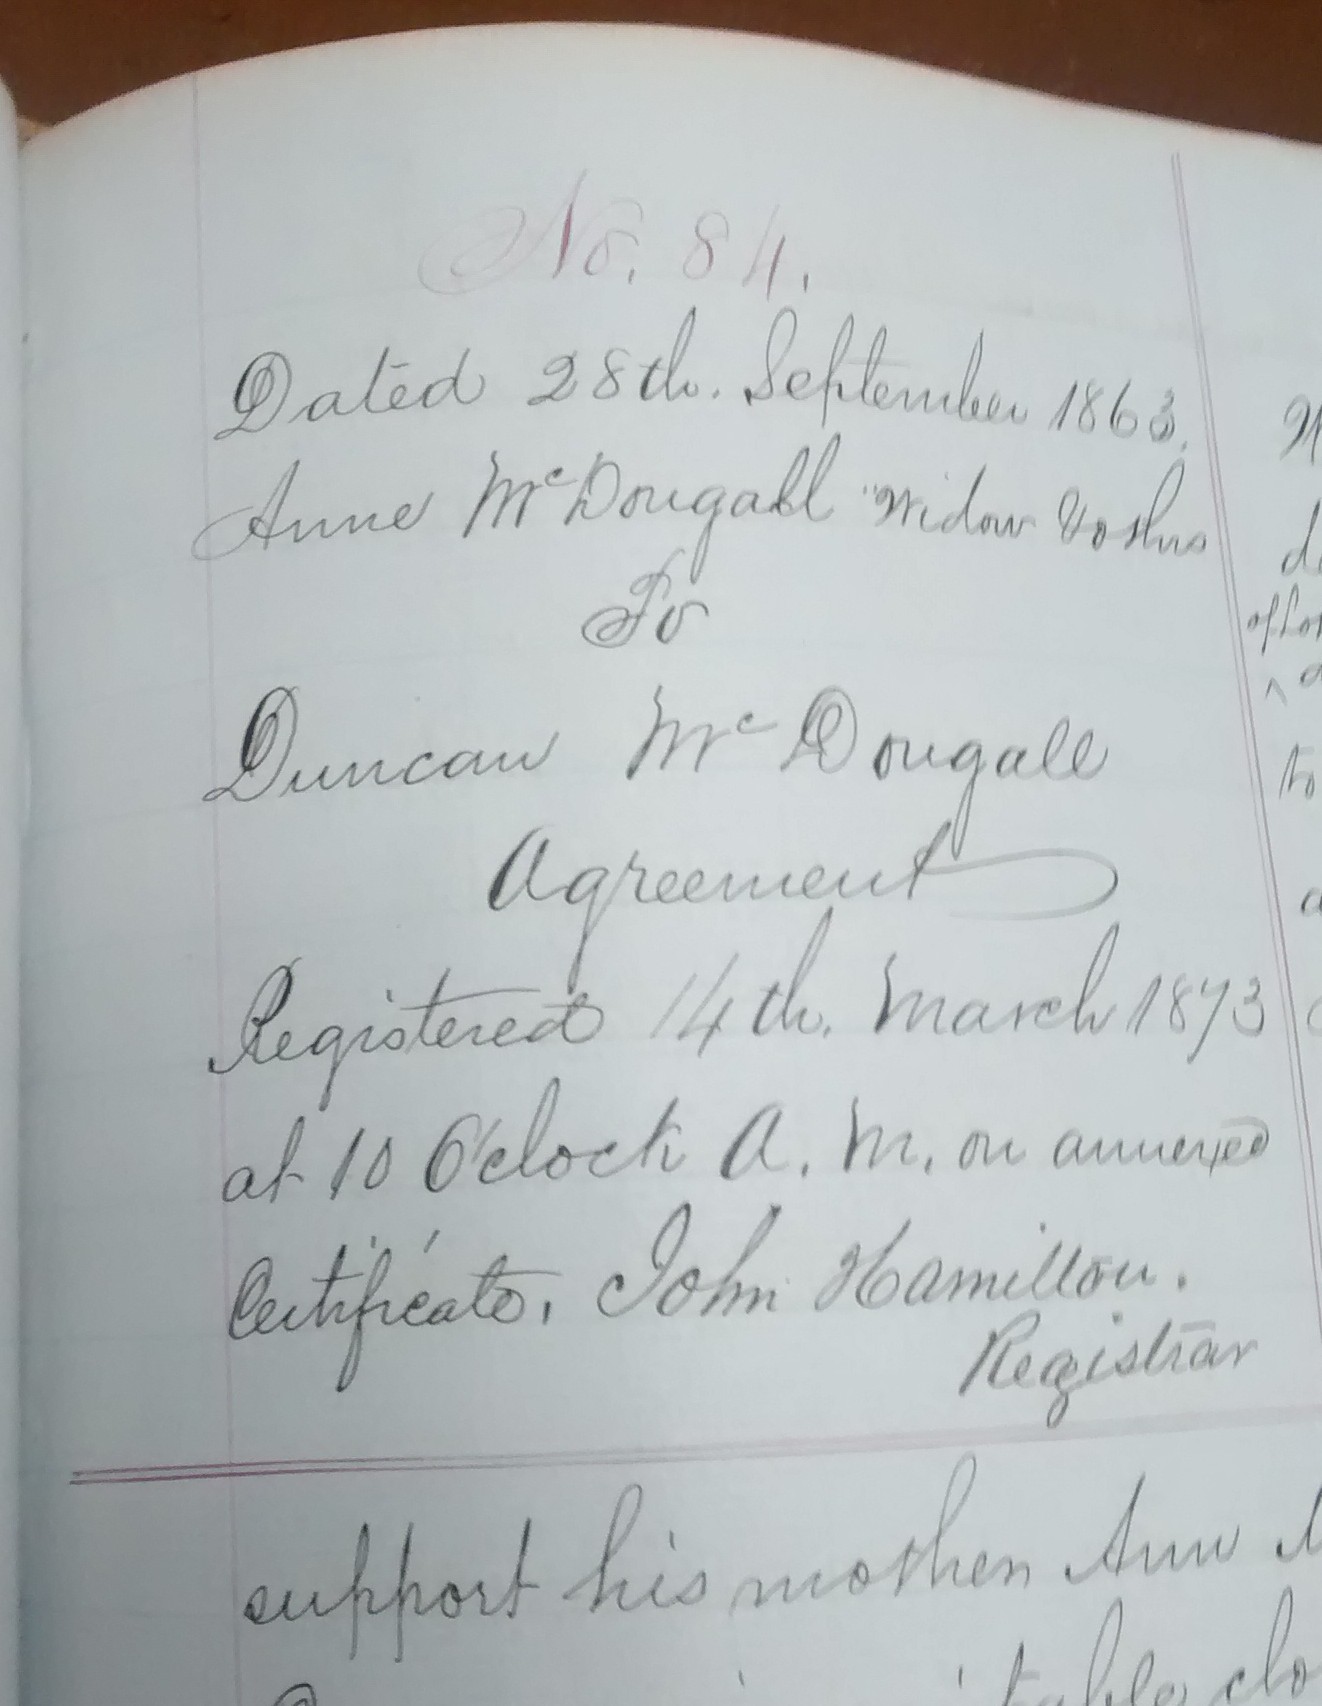 No. 84.
Dated 28th. September 1863.
Anne McDougall "Widow
To
Duncan McDougall
Agreement
Registered 14th. March 1873
at 10 O'clock A. M. on annexed
Certificate, John Hamilton.
Registrar
support his mother Ann